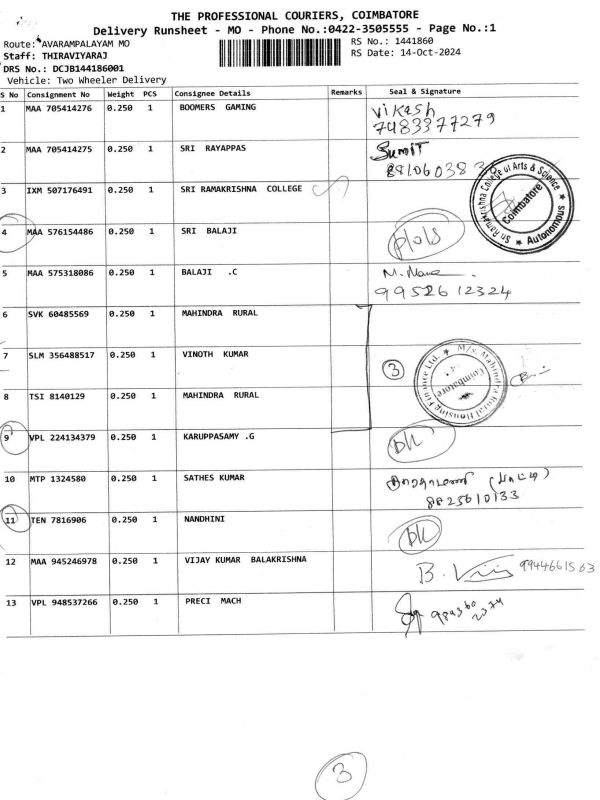 THE PROFESSIONAL COURIERS, COIMBATORE
Delivery Runsheet - MO - Phone No.:0422-3505555 - Page No.:1
Route: AVARAMPALAYAM MO
RS No.: 1441860
Staff: THIRAVIYARAJ
RS Date: 14-Oct-2024
DRS No.: DCJB144186001
Vehicle: Two Wheeler Delivery
S No Consignment No Weight PCS Consignee Details Remarks Seal & Signature
1 MAA 705414276 0.250 1 BOOMERS GAMING Vikash
7483377279
2 MAA 705414275 0.250 1 SRI RAYAPPAS Sumit
3 IXM 507176491 0.250 1 SRI RAMAKRISHNA COLLEGE
Sri Ramakrishna College of Arts & Science
Coimbatore
Autonomous
4 MAA 576154486 0.250 1 SRI BALAJI
5 MAA 575318086 0.250 1 BALAJI .C
9952612324
6 SVK 60485569 0.250 1 MAHINDRA RURAL
7 SLM 356488517 0.250 1 VINOTH KUMAR 3
M/s. Mahindra Rural Housing Finance Ltd.
Coimbatore
8 TSI 8140129 0.250 1 MAHINDRA RURAL
9 VPL 224134379 0.250 1 KARUPPASAMY .G DK
10 MTP 1324580 0.250 1 SATHES KUMAR
8825610133
11 TEN 7816906 0.250 1 NANDHINI DK
12 MAA 945246978 0.250 1 VIJAY KUMAR BALAKRISHNA 9944661563
13 VPL 948537266 0.250 1 PRECI MACH
3